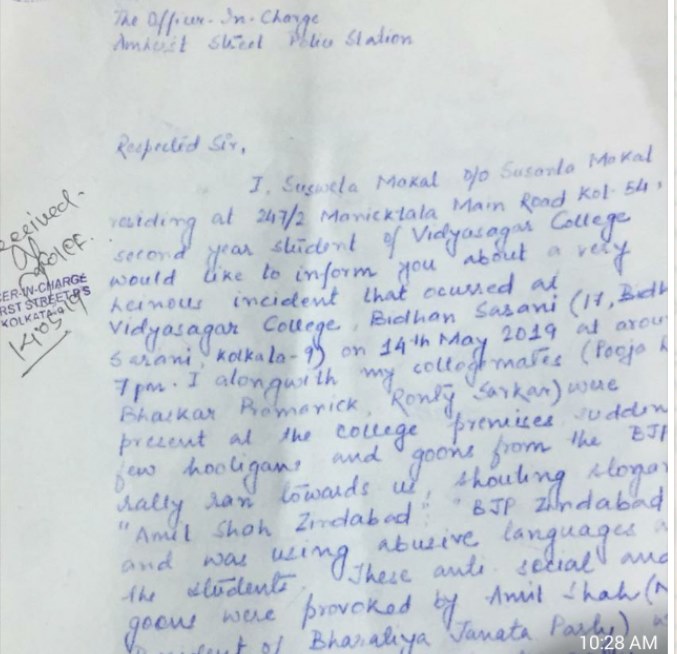 The Officer-In-Charge
Amherst Street Police Station
Respected Sir,
I, Suswela Mokal D/o Susanta Mokal
residing at 247/2 Manicktala Main Road Kol-54,
second year student of Vidyasagar College
would like to inform you about a very
heinous incident that ocussed at
Vidyasagar College, Bidhan Sasani (17, Bidh
Sarani, Kolkata-9) on 14th May 2019 at arou
7 pm. I alongwith my collegemates (Pooja
Bhaskar Pramanick, Ronty Sarkar) were
present at the college premises. Sudden
few hooligans and goons from the BJP
rally ran towards us, shouting slogan
"Amit Shah Zindabad". "BJP Zindabad
and was using abusive languages a
the students. These anti social and
goons were provoked by Amit Shah (
of Bharatiya Janata Party) w
Received.
CER-IN-CHARGE
RST STREET PS
KOLKATA
10:28 AM